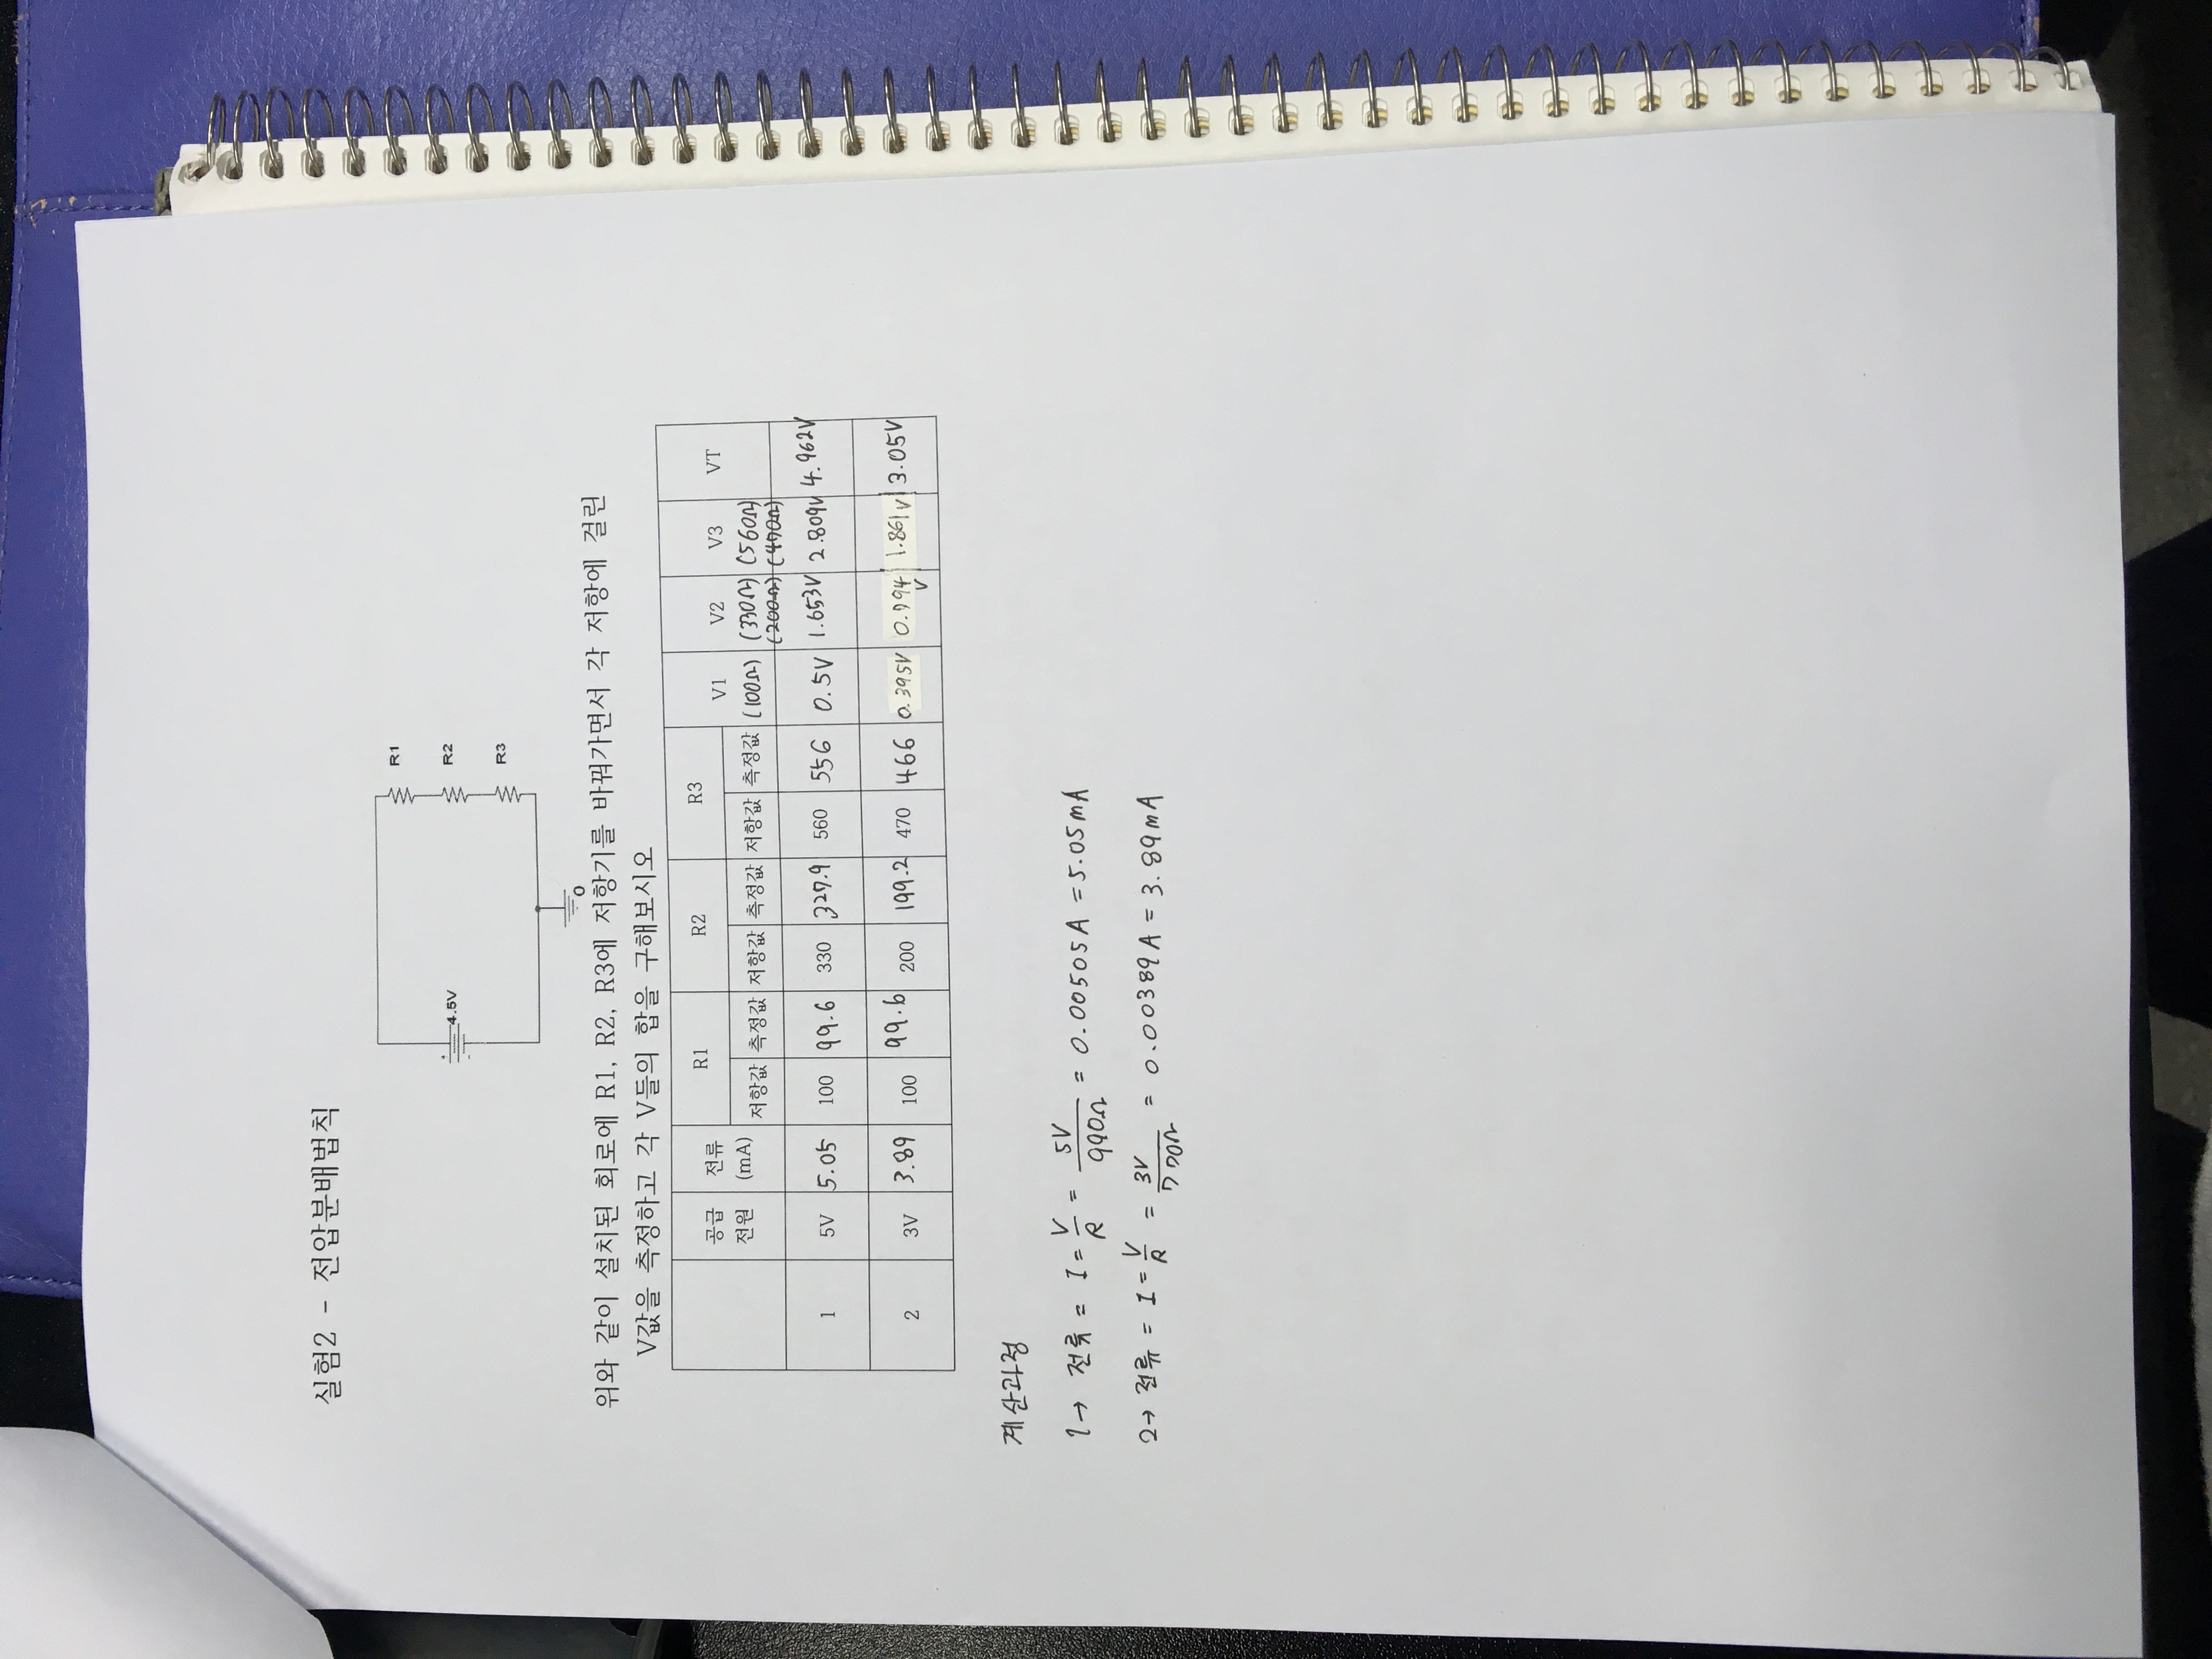 실험2 - 전압분배법칙
R1
4.5V
R2
R3
0
위와 같이 설치된 회로에 R1, R2, R3에 저항기를 바꿔가면서 각 저항에 걸린
V값을 측정하고 각 V들의 합을 구해보시오
공급 전원 전류 (mA) R1 R2 R3 V1 (100Ω) V2 (330Ω) (200Ω) V3 (560Ω) (470Ω) VT
저항값 측정값 저항값 측정값 저항값 측정값
1 5V 5.05 100 99.6 330 327.9 560 556 0.5V 1.653V 2.809V 4.962V
2 3V 3.89 100 99.6 200 199.2 470 466 0.395V 0.794V 1.861V 3.05V
계산과정
1→ 전류 = I = V/R = 5V/990Ω = 0.00505A = 5.05mA
2→ 전류 = I = V/R = 3V/770Ω = 0.00389A = 3.89mA